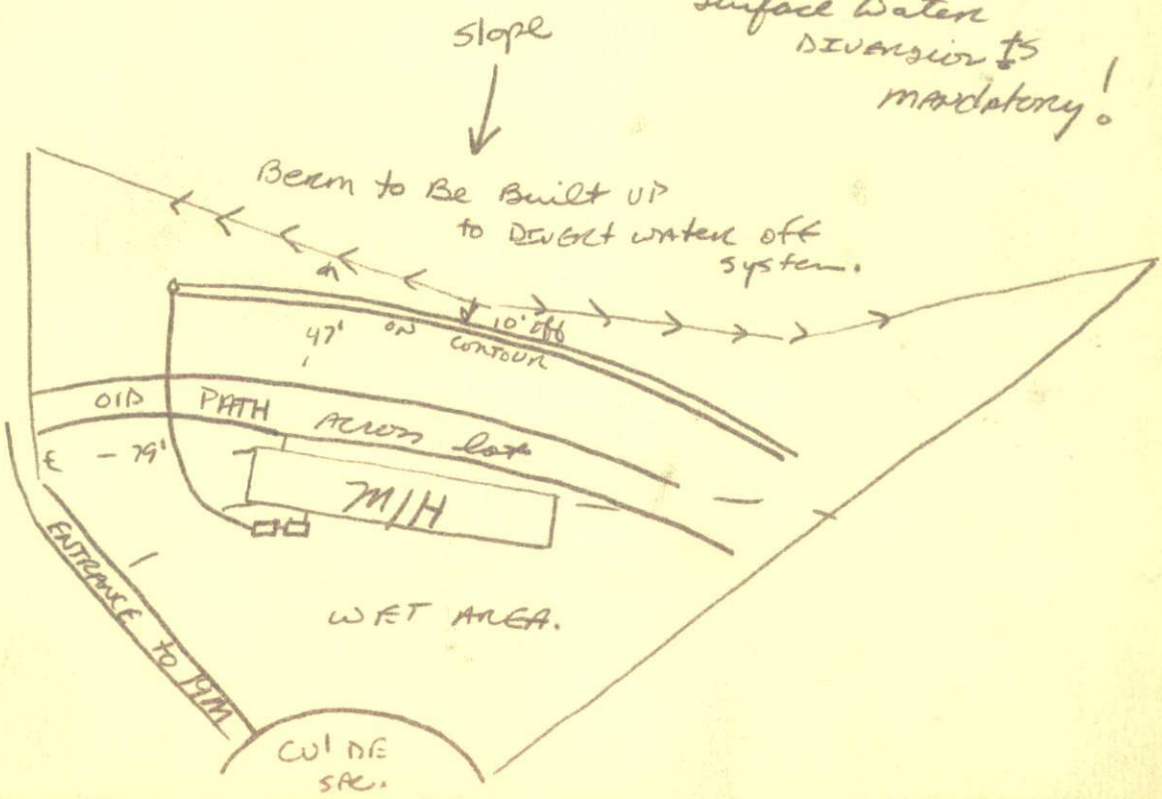 Surface Water
DIVERSION IS
MANDATORY!
Slope
Berm to Be Built UP
to DIVERT WATER OFF
system.
10' off
47' ON
CONTOUR
OLD PATH ACROSS lot
- 79'
M/H
ENTRANCE to 19M
WET AREA.
CUL DE
SAC.